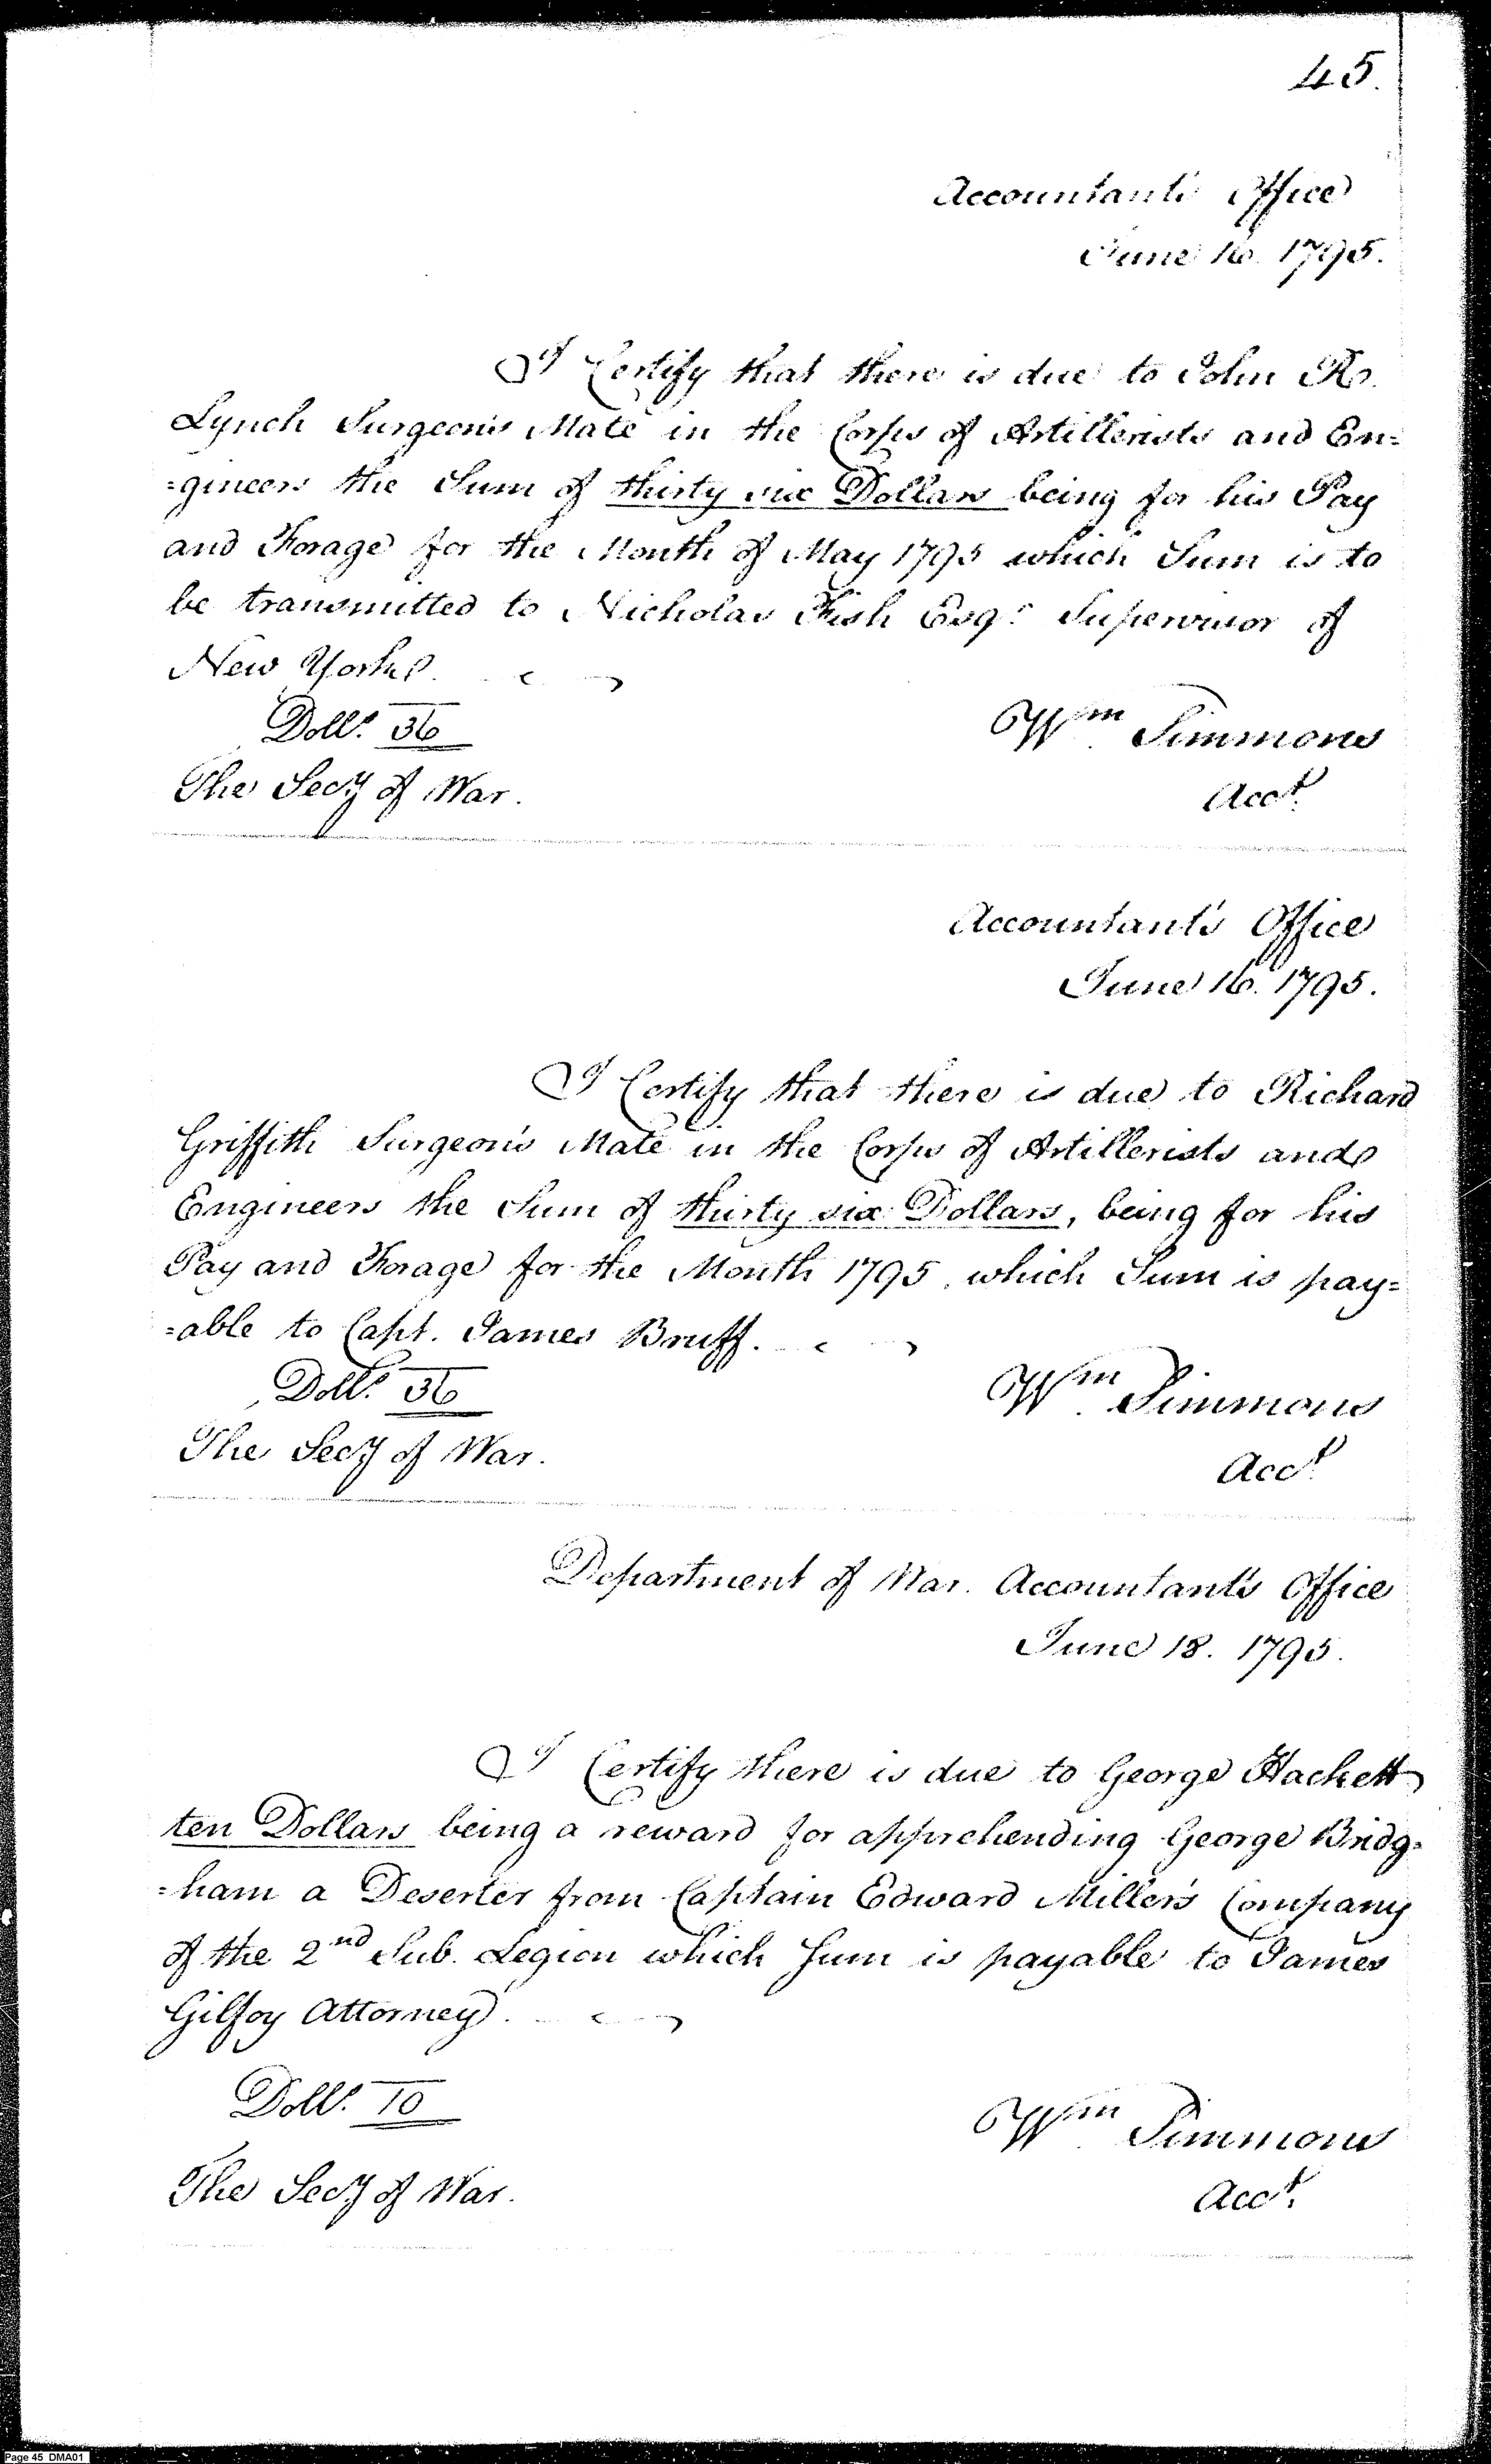 45.
Accountant's Office
June 16. 1795.
I Certify that there is due to John R.
Lynch Surgeon's Mate in the Corps of Artillerists and En=
=gineers the Sum of thirty six Dollars being for his Pay
and Forage for the Month of May 1795 which Sum is to
be transmitted to Nicholas Fish Esqr. Supervisor of
New York.
Dolls. 36
Wm. Simmons
The Secy of War.
Acct.
Accountant's Office
June 16. 1795.
I Certify that there is due to Richard
Griffith Surgeon's Mate in the Corps of Artillerists and
Engineers the Sum of thirty six Dollars, being for his
Pay and Forage for the Month 1795, which Sum is pay=
=able to Capt. James Bruff.
Dolls. 36
Wm. Simmons
The Secy of War.
Acct.
Department of War. Accountant's Office
June 18. 1795.
I Certify there is due to George Hackett
ten Dollars being a reward for apprehending George Bridg=
=ham a Deserter from Captain Edward Miller's Company
of the 2nd Sub. Legion which Sum is payable to James
Gilfoy Attorney.
Dolls. 10
Wm. Simmons
The Secy of War.
Acct.
Page 45 DMA01